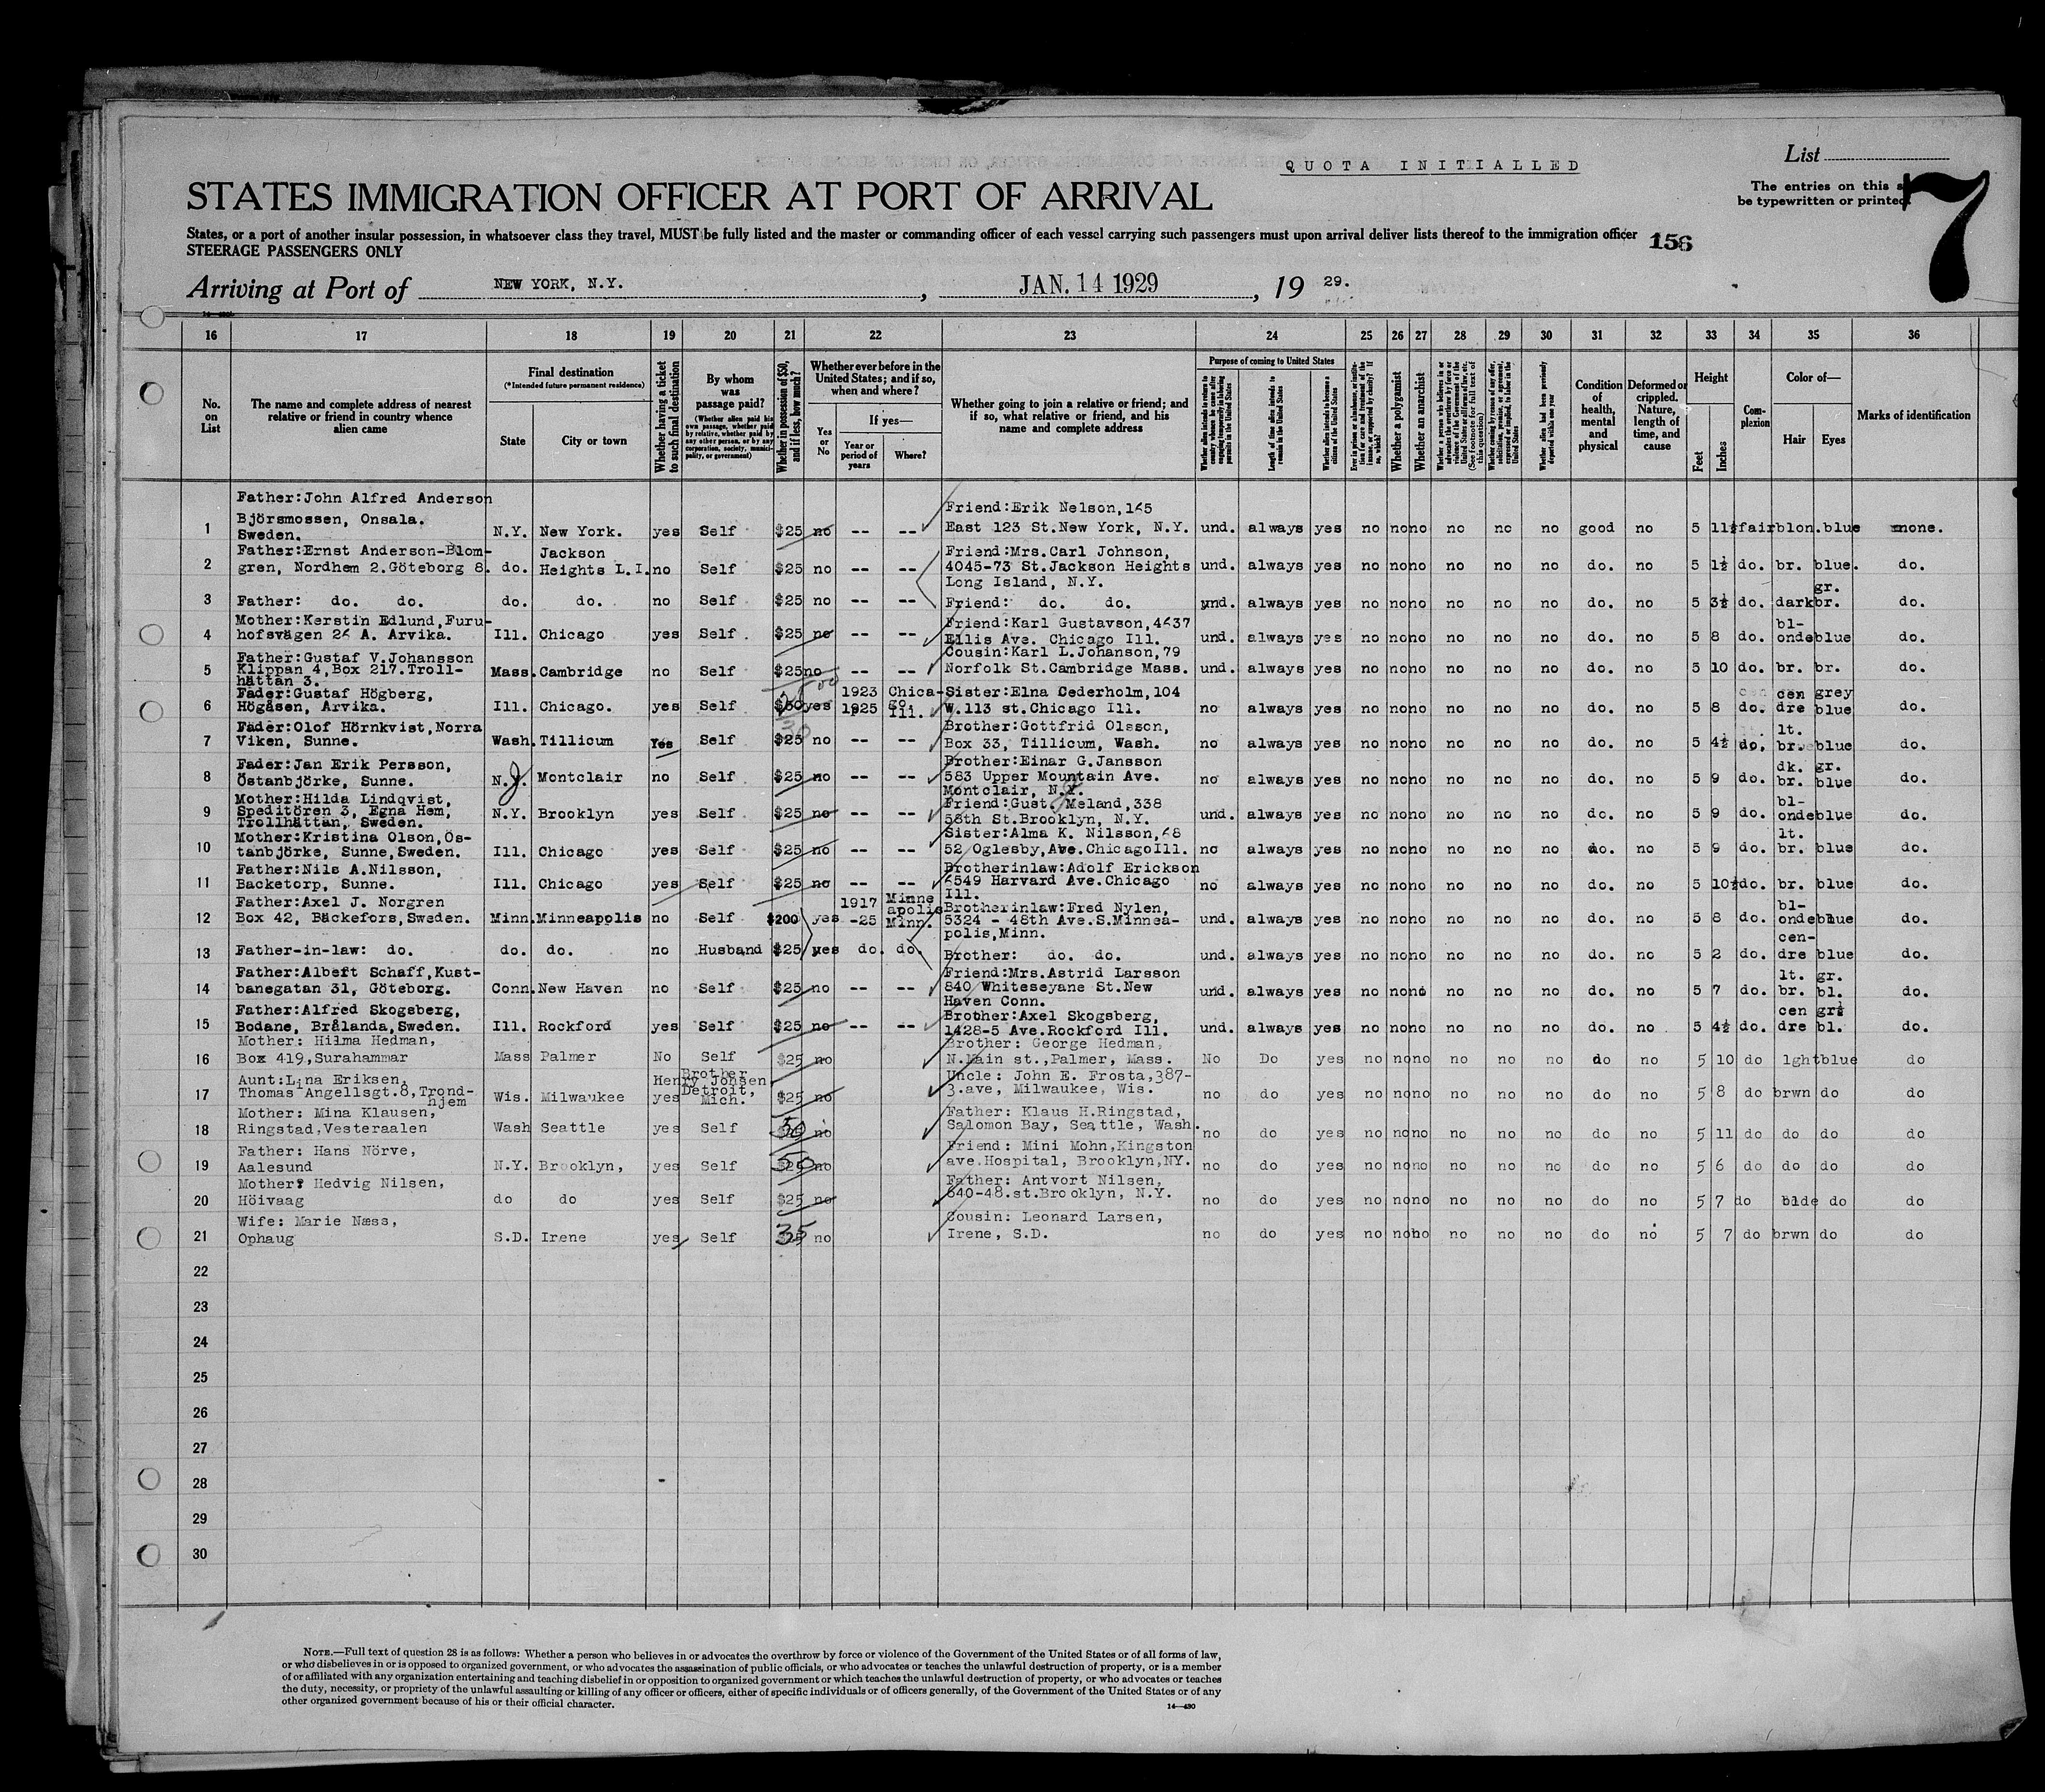 QUOTA INITIALLED
List
STATES IMMIGRATION OFFICER AT PORT OF ARRIVAL
The entries on this s
be typewritten or printed.
7
States, or a port of another insular possession, in whatsoever class they travel, MUST be fully listed and the master or commanding officer of each vessel carrying such passengers must upon arrival deliver lists thereof to the immigration officer
156
STEERAGE PASSENGERS ONLY
Arriving at Port of NEW YORK, N.Y. , JAN. 14 1929 , 19 29.
16 17 18 19 20 21 22 23 24 25 26 27 28 29 30 31 32 33 34 35 36
No. on List
The name and complete address of nearest relative or friend in country whence alien came
Final destination
(*Intended future permanent residence)
State
City or town
Whether having a ticket to such final destination
By whom was passage paid?
(Whether alien paid his own passage, whether paid by relative, whether paid by any other person, or by any corporation, society, municipality, or government)
Whether in possession of $50, and if less, how much?
Whether ever before in the United States; and if so, when and where?
Yes or No
If yes—
Year or period of years
Where?
Whether going to join a relative or friend; and if so, what relative or friend, and his name and complete address
Purpose of coming to United States
Whether alien intends to return to country whence he came after engaging temporarily in laboring pursuits in the United States
Length of time alien intends to remain in the United States
Whether alien intends to become a citizen of the United States
Ever in prison or almshouse, or institution for care and treatment of the insane, or supported by charity? If so, which?
Whether a polygamist
Whether an anarchist
Whether a person who believes in or advocates the overthrow by force or violence of the Government of the United States or all forms of law, etc. (See footnote for full text of this question)
Whether coming by reason of any offer, solicitation, promise, or agreement, expressed or implied, to labor in the United States
Whether alien had been previously deported within one year
Condition of health, mental and physical
Deformed or crippled. Nature, length of time, and cause
Height
Feet
Inches
Complexion
Color of—
Hair
Eyes
Marks of identification
1 Father:John Alfred Anderson Björsmossen, Onsala. Sweden. N.Y. New York. yes Self $25 no -- -- Friend:Erik Nelson,165 East 123 St.New York, N.Y. und. always yes no no no no no no good no 5 11½ fair blon. blue none.
2 Father:Ernst Anderson-Blom-gren, Nordhem 2.Göteborg 8. do. Jackson Heights L.I. no Self $25 no -- -- Friend:Mrs.Carl Johnson, 4045-73 St.Jackson Heights Long Island, N.Y. und. always yes no no no no no no do. no 5 1½ do. br. blue. do.
3 Father: do. do. do. do. no Self $25 no -- -- Friend: do. do. und. always yes no no no no no no do. no 5 3½ do. dark gr. br. do.
4 Mother:Kerstin Edlund,Furu-hofsvägen 26 A. Arvika. Ill. Chicago yes Self $25 no -- -- Friend:Karl Gustavson,4637 Ellis Ave. Chicago Ill. und. always yes no no no no no no do. no 5 8 do. bl-onde blue do.
5 Father:Gustaf V.Johansson Klippan 4,Box 217.Troll-hättan 3. Mass. Cambridge no Self $25 no -- -- Cousin:Karl L.Johanson,79 Norfolk St.Cambridge Mass. und. always yes no no no no no no do. no 5 10 do. br. br. do.
6 Fader:Gustaf Högberg, Högåsen, Arvika. Ill. Chicago. yes Self $50 yes 1923 1925 Chica-go, Ill. Sister:Elna Cederholm,104 W.113 st.Chicago Ill. no always yes no no no no no no do. no 5 8 do. cen dre grey blue do.
7 Fader:Olof Hörnkvist,Norra Viken, Sunne. Wash. Tillicum Yes Self $25 30 no -- -- Brother:Gottfrid Olsson, Box 33, Tillicum, Wash. no always yes no no no no no no do. no 5 4½ do. lt. br. blue do.
8 Fader:Jan Erik Persson, Östanbjörke, Sunne. N.J. Montclair no Self $25 no -- -- Brother:Einar G.Jansson 583 Upper Mountain Ave. Montclair, N.J. no always yes no no no no no no do. no 5 9 do. dk. br. gr. blue do.
9 Mother:Hilda Lindqvist, Speditören 3, Egna Hem, Trollhättan, Sweden. N.Y. Brooklyn yes Self $25 no -- -- Friend:Gust. Meland,338 58th St.Brooklyn, N.Y. und. always yes no no no no no no do. no 5 9 do. bl-onde blue do.
10 Mother:Kristina Olson,Ös-tanbjörke, Sunne,Sweden. Ill. Chicago yes Self $25 no -- -- Sister:Alma K. Nilsson,68 52 Oglesby,Ave.Chicago Ill. no always yes no no no no no no do. no 5 9 do. lt. br. blue do.
11 Father:Nils A.Nilsson, Backetorp, Sunne. Ill. Chicago yes Self $25 no -- -- Brotherinlaw:Adolf Erickson 6549 Harvard Ave.Chicago Ill. no always yes no no no no no no do. no 5 10½ do. br. blue do.
12 Father:Axel J. Norgren Box 42, Bäckefors,Sweden. Minn. Minneapolis no Self $200 yes 1917 -25 Minne apolis Minn. Brotherinlaw:Fred Nylen, 5324 - 48th Ave.S.Minnea-polis,Minn. und. always yes no no no no no no do. no 5 8 do. bl-onde blue do.
13 Father-in-law: do. do. do. no Husband $25 yes do. do. Brother: do. do. und. always yes no no no no no no do. no 5 2 do. cen-dre blue do.
14 Father:Albeft Schaff,Kust-banegatan 31, Göteborg. Conn. New Haven no Self $25 no -- -- Friend:Mrs.Astrid Larsson 840 Whiteseyane St.New Haven Conn. und. always yes no no no no no no do. no 5 7 do. lt. br. gr. bl. do.
15 Father:Alfred Skogsberg, Bodane, Brålanda,Sweden. Ill. Rockford yes Self $25 no -- -- Brother:Axel Skogsberg, 1428-5 Ave.Rockford Ill. und. always yes no no no no no no do. no 5 4½ do. cen dre gr. bl. do.
16 Mother: Hilma Hedman, Box 419,Surahammar Mass Palmer No Self $25 no Brother: George Hedman, N.Main st.,Palmer, Mass. No Do yes no no no no no no do no 5 10 do lght blue do
17 Aunt:Lina Eriksen, Thomas Angellsgt.8,Trond-hjem Wis. Milwaukee yes Brother Henry Johsen, Detroit, Mich. $25 no Uncle: John E. Frosta,387-3.ave, Milwaukee, Wis. no do yes no no no no no no do no 5 8 do brwn do do
18 Mother: Mina Klausen, Ringstad,Vesteraalen Wash Seattle yes Self 30 no Father: Klaus H.Ringstad, Salomon Bay, Seattle, Wash. no do yes no no no no no no do no 5 11 do do do do
19 Father: Hans Nörve, Aalesund N.Y. Brooklyn, yes Self $25 50 no Friend: Mini Mohn,Kingston ave.Hospital, Brooklyn,NY. no do yes no no no no no no do no 5 6 do do do do
20 Mother: Hedvig Nilsen, Höivaag do do yes Self $25 no Father: Antvort Nilsen, 640-48.st.Brooklyn, N.Y. no do yes no no no no no no do no 5 7 do blde do do
21 Wife: Marie Næss, Ophaug S.D. Irene yes Self 35 no Cousin: Leonard Larsen, Irene, S.D. no do yes no no no no no no do no 5 7 do brwn do do
22
23
24
25
26
27
28
29
30
NOTE.—Full text of question 28 is as follows: Whether a person who believes in or advocates the overthrow by force or violence of the Government of the United States or of all forms of law,
or who disbelieves in or is opposed to organized government, or who advocates the assassination of public officials, or who advocates or teaches the unlawful destruction of property, or is a member
of or affiliated with any organization entertaining and teaching disbelief in or opposition to organized government or which teaches the unlawful destruction of property, or who advocates or teaches
the duty, necessity, or propriety of the unlawful assaulting or killing of any officer or officers, either of specific individuals or of officers generally, of the Government of the United States or of any
other organized government because of his or their official character.
14—430